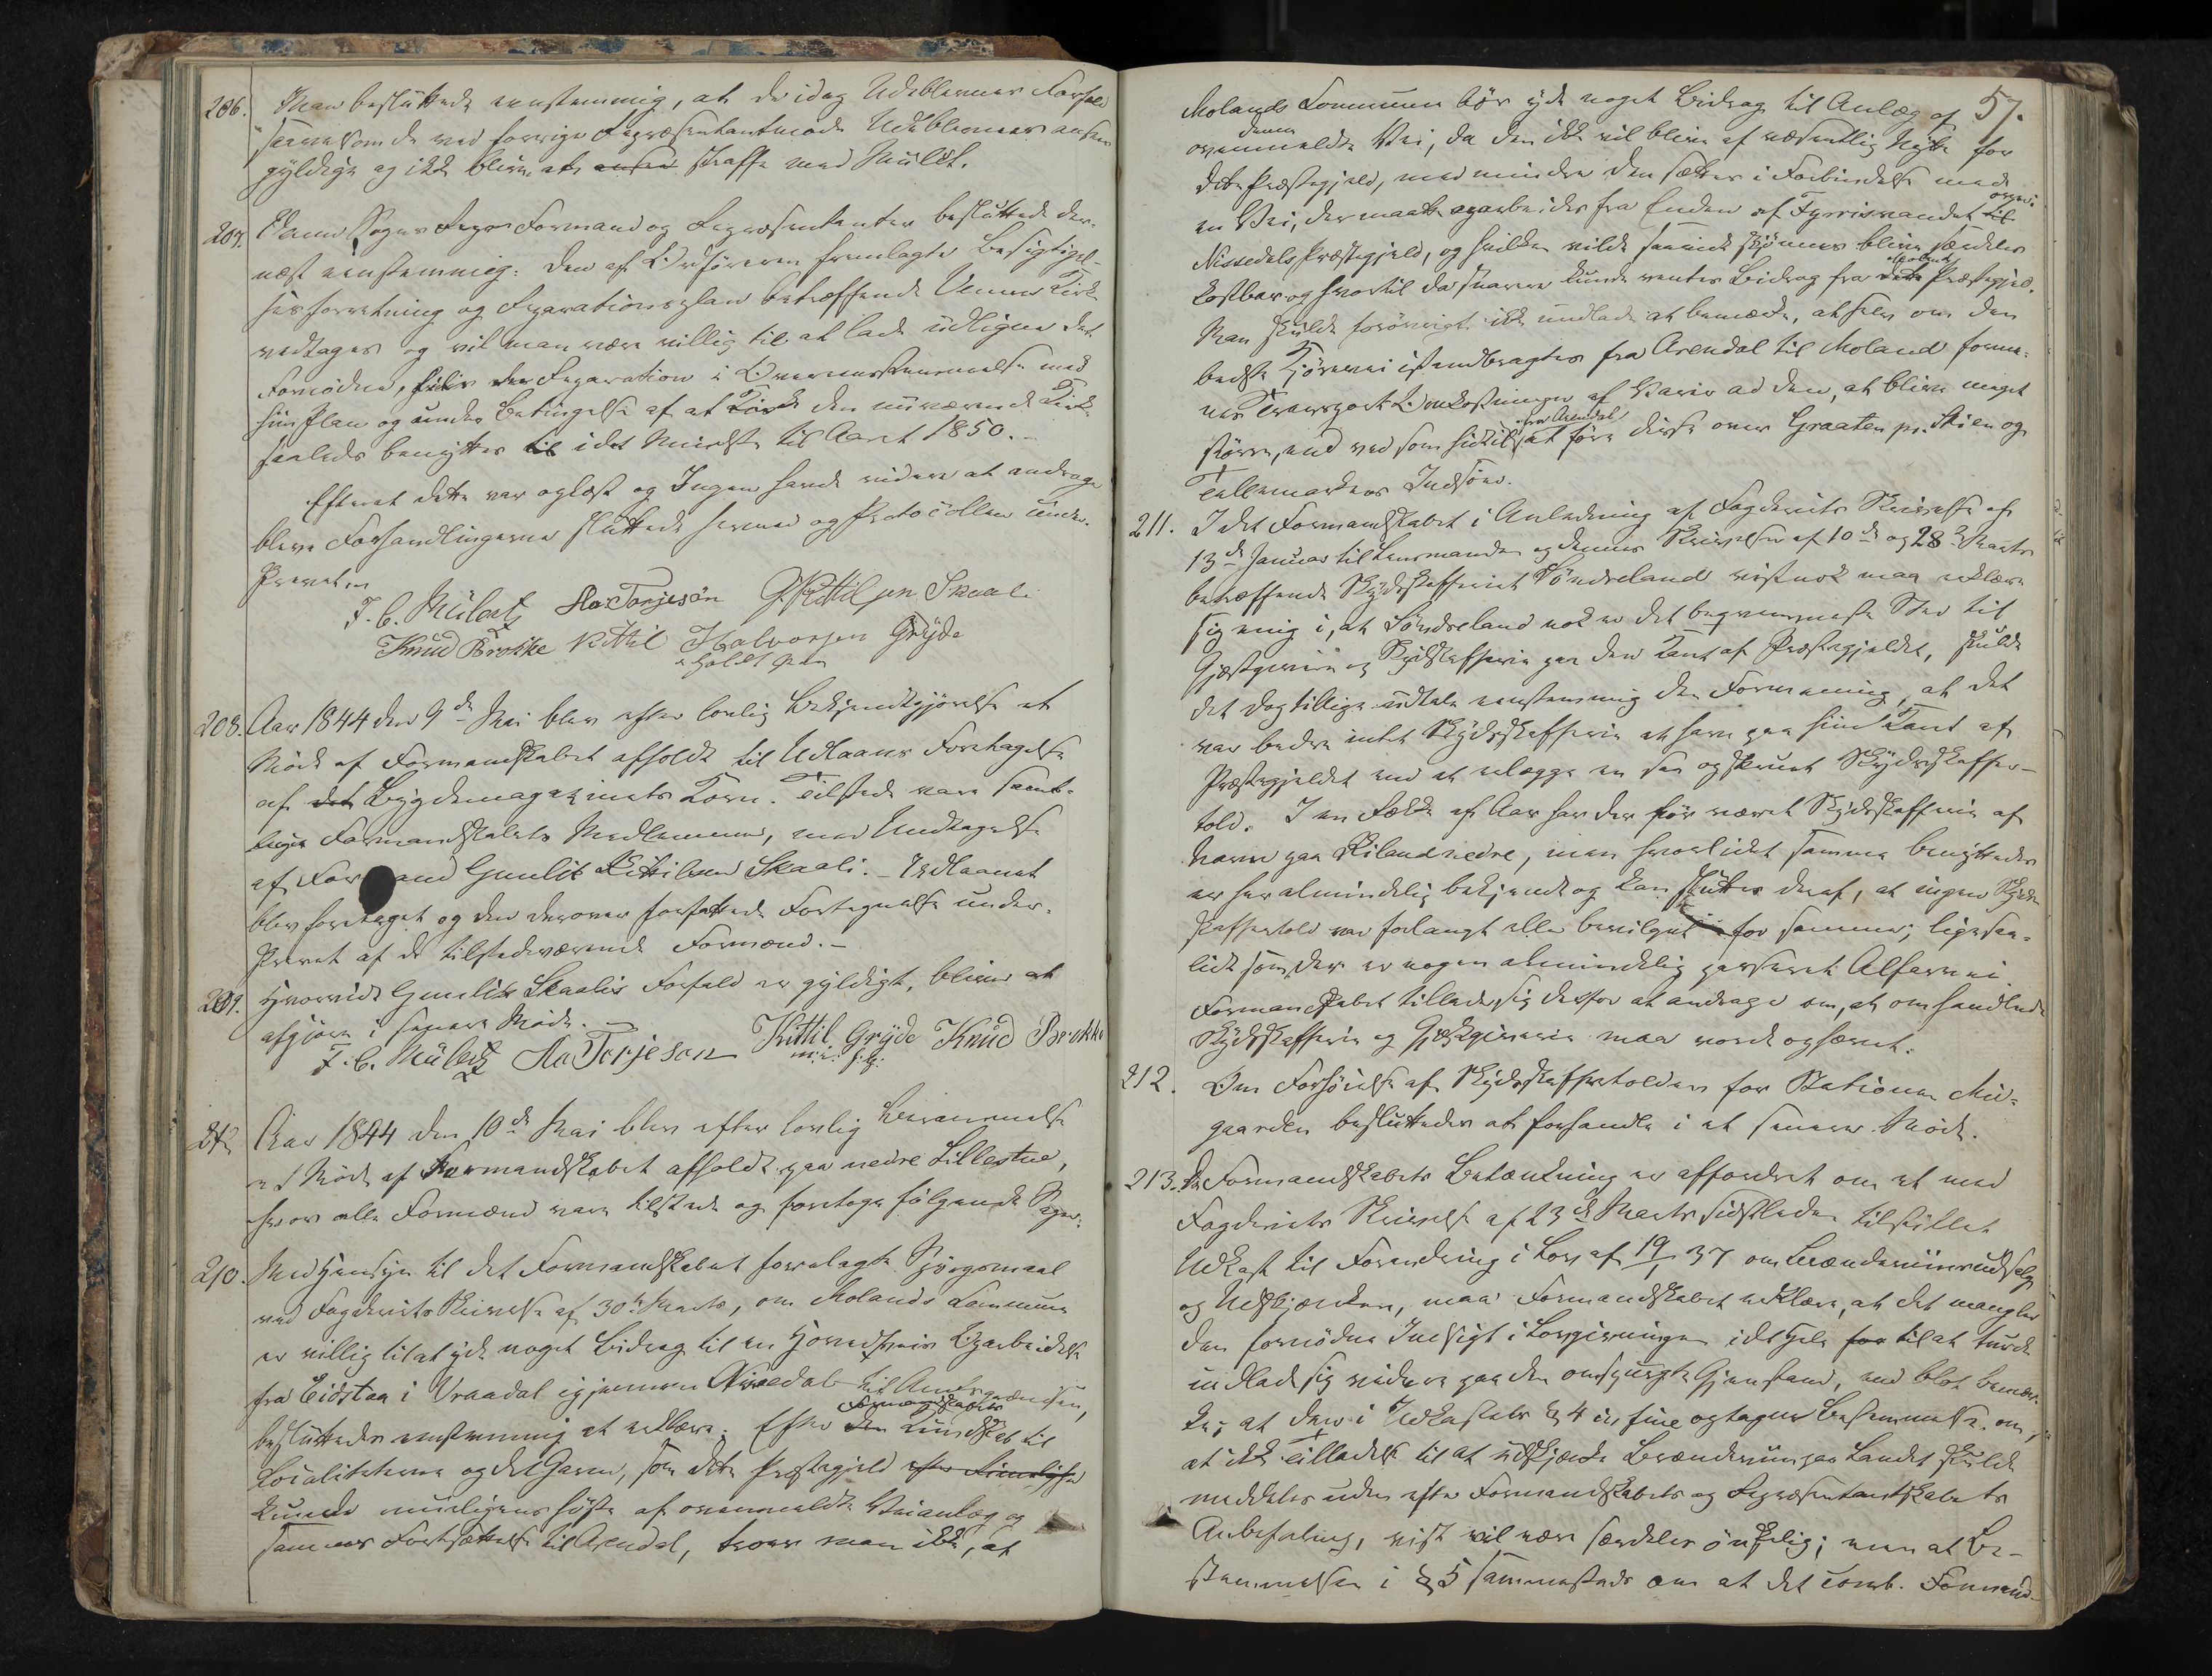 206. Man besluttede eenstemmig, at de idag Udeblevnes Forfald
saavelsom de ved forrige Repræsentantmøde Udeblevnes ansees
gyldige og ikke blive at ansee straffe med Mulct.
207. Vraae Sogns Formænd og Repræsentanter besluttede der-
næst eenstemmig: Den af Ordføreren fremlagte Besigtigel-
sesforretning og Reparationsplan betræffende Kirke
vedtages og vil man være villig til at lade udligne det
Fornödne, til Reparation i Overeensstemmelse med
hiin Plan og under Betingelse af at den nuværende Kirke
saaledes benyttes til idet Mindste til Aaret 1850.-
Efterat dette var oplæst og Ingen havde videre at andrage
bleve Forhandlingerne sluttede hermed og Protocollen under-
skreven
F. C. Mülertz Ha: Torjesön G Kittilsen Skaali
Knud Brokke Kittil Halvorsen Gryde
m holdt Pen
208. Aar 1844 den 9de Mai blev efter lovlig Bekjendtgjörelse et
Möde af Formandskabet afholdt til Udlaans Foretagelse
af det Bygdemagazinets Korn. Tilstede vare samt-
lige Formandskabets Medlemmer, med Undtagelse
af Formand Gunlik Kittilsen Skaali. – Udlaanet
blev foretaget og den derover forfattede Fortegnelse under-
skrevet af de tilstedeværende Formænd. –
209. Hvorvidt Gunlik Skaalis Forfald er gyldigt, bliver at
afgjöre i senere Möde. –
F. C. Mülertz Ha Torjeson Kittil Gryde Knud Brokke
m: i: P:
Aar 1844 den 10de Mai blev efter lovlig Berammelse
et Möde af Formandskabet afholdt paa nedre Lillestue,
hvor alle Formænd vare tilstede og foretoge fölgende Sager:
210. Med Hensyn til det Formandskabet forelagte Spörgsmaal
ved Fogderiets Skrivelse af 30te Marts, om Molands Commune
er villig til at yde noget Bidrag til en Hovedveis Oparbeidelse
fra Eidstaa i Vraadal igjennem Nissedal til Amtsgrændsen,
besluttedes eenstemmig at erklære: Efter den Formandskabets Kundskab til
Localiteterne og det Gavn, som dette Præstegjeld efter Rimelighed
kunde muligens höste af ovenmeldte Veianlæg og
sammes Fortsættelse til Arendal, troer man ikke, at
57.
Molands Commune bör yde noget Bidrag til Anlæg af
denne
ovenmeldte Vei, da den ikke vil blive af væsentlig Nytte for
dette Præstegjeld, med mindre den sættes i Forbindelse med
en Vei, der maatte oparbeides fra Enden af Fyrrisvandet til over i
Nissedals Præstegjeld, og hvilken vilde saavidt skjönnes blive særdeles
kostbar og hvortil da snarere kunde ventes Bidrag fra dette Molands Præstegjeld.
Man skulde forövrigt ikke undlade at bemærke, at selv om den
bedste Kjörevei istandbragtes fra Arendal til Moland forme-
nes Transport Omkostningen af Varer ad den, at blive meget
större, end ved som hidtil fra Arendal at före disse over Graaten pr. Skien og
Tellemarkens Indsöer.
211. Idet Formandskabet i Anledning af Fogderiets Skrivelse af
13de Januar til Lensmanden og dennes Skrivelser af 10de og 28de Marts
betræffende Skydsskafferiet Söndreland vistnok maa erklære
sig enig i, at Söndreland nok er det beqvemmeste Sted til
Gjæstgiveri og Skydsskafferi paa den Kant af Præstegjeldet, skulde
det dog tillige udtale eenstemmig den Formening, at det
var bedre intet Skydsskafferi at have paa hiin Kant af
Præstegjeldet end at udlægge en saa opskruet Skydsskaffer-
told. I en Række af Aar har der för været Skydsskafferi af
Navn paa Kilandnedre, men hvorlidet samme benyttedes
er her almindelig bekjendt og kan sluttes deraf, at ingen Skyds-
skaffertold var forlangt eller bevilget for samme; ligesaa-
lidt som der er nogen almindelig passeret Alfarvei.
Formandskabet tillader sig derfor at andrage om, at omhandlede
Skydsskafferi og Gjæstgiveri maa vorde ophævet.
212. Om Forhöielse af Skydsskaffertolden for Stationen Mid-
gaarden besluttedes at forhandle i et senere Möde.
213. Da Formandskabets Betænkning er affordret om et med
Fogderiets Skrivelse af 23de Marts sidstleden tilstillet
Udkast til Forandring i Lov af 19/1 37 om Brændeviinsudsalg
og Udskjænken, maa Formandskabet erklære, at det mangler
den fornödne Indsigt i Lovgivningen idethele for til at turde
indlade sig videre paa den omspurgte Gjenstand, end blot bemær-
ke; at den i Udkastets § 4 in fine optagne Bestemmelse om,
at ikke Tilladelse til at udskjænke Brændeviin paa Landet skulde
meddeles uden efter Formandskabets og Repræsentantskabets
Anbefaling, vist vil være særdeles önskelig; men at Be-
stemmelsen i § 5 sammesteds om at det comb. Formand-